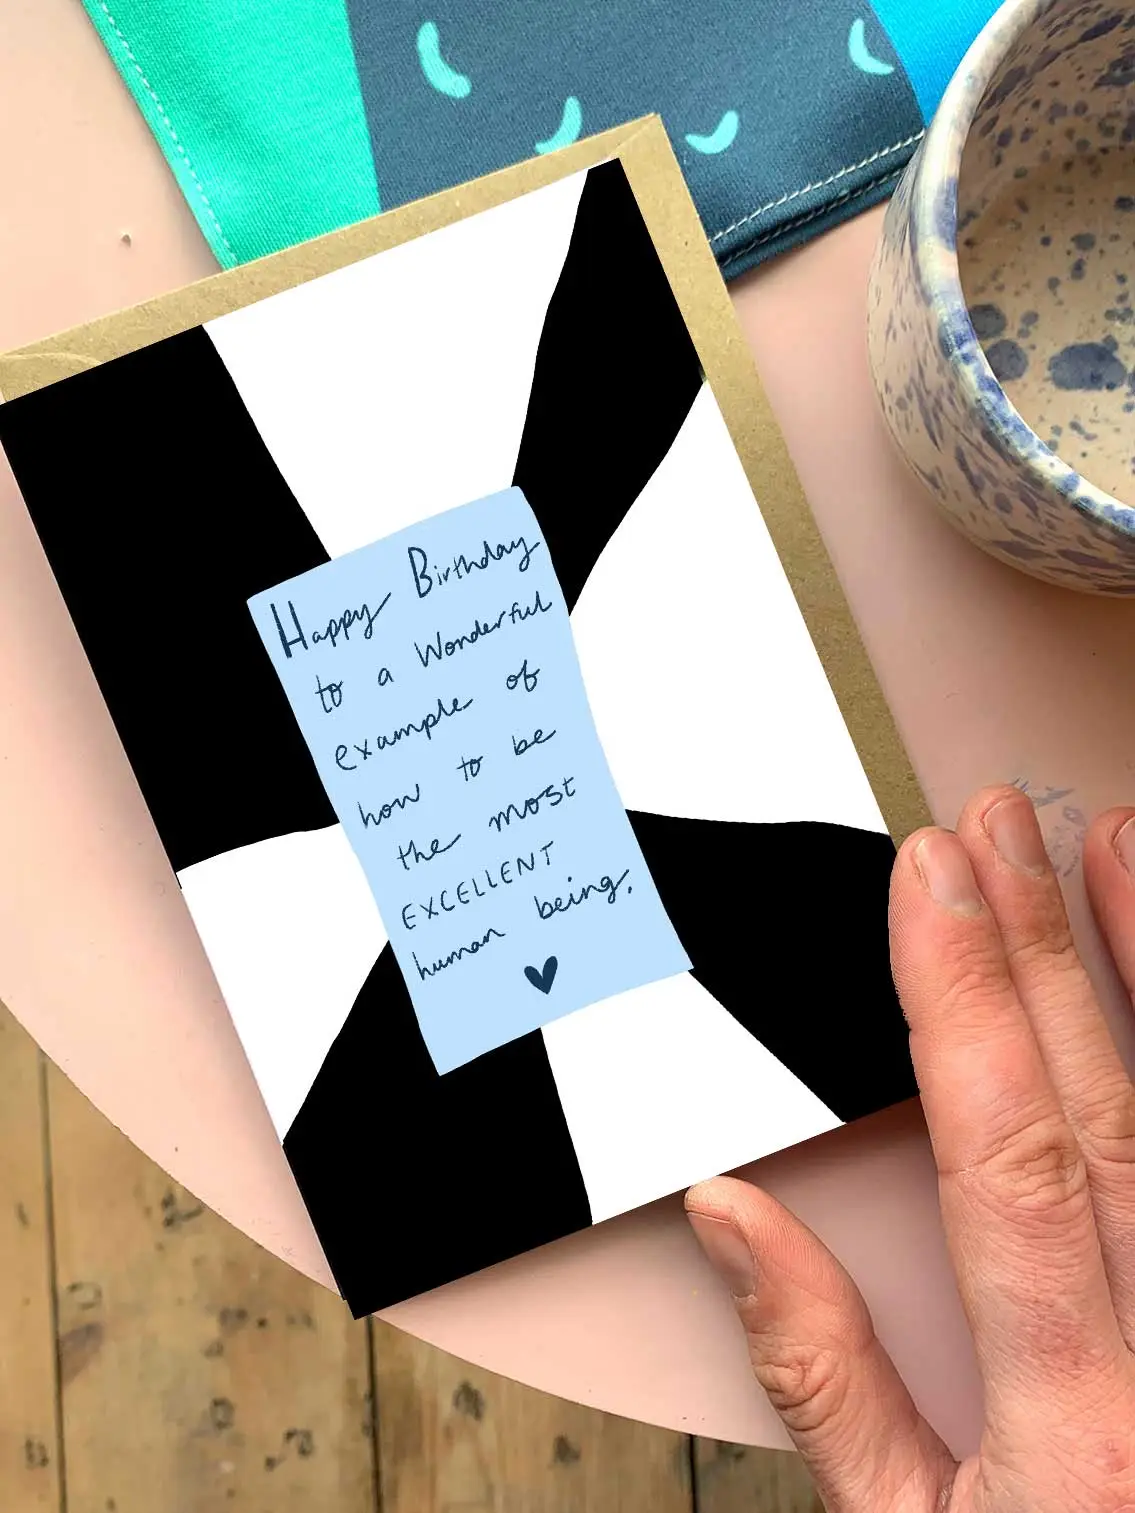 Happy Birthday
to a Wonderful
example of
how to be
the most
EXCELLENT
human being.